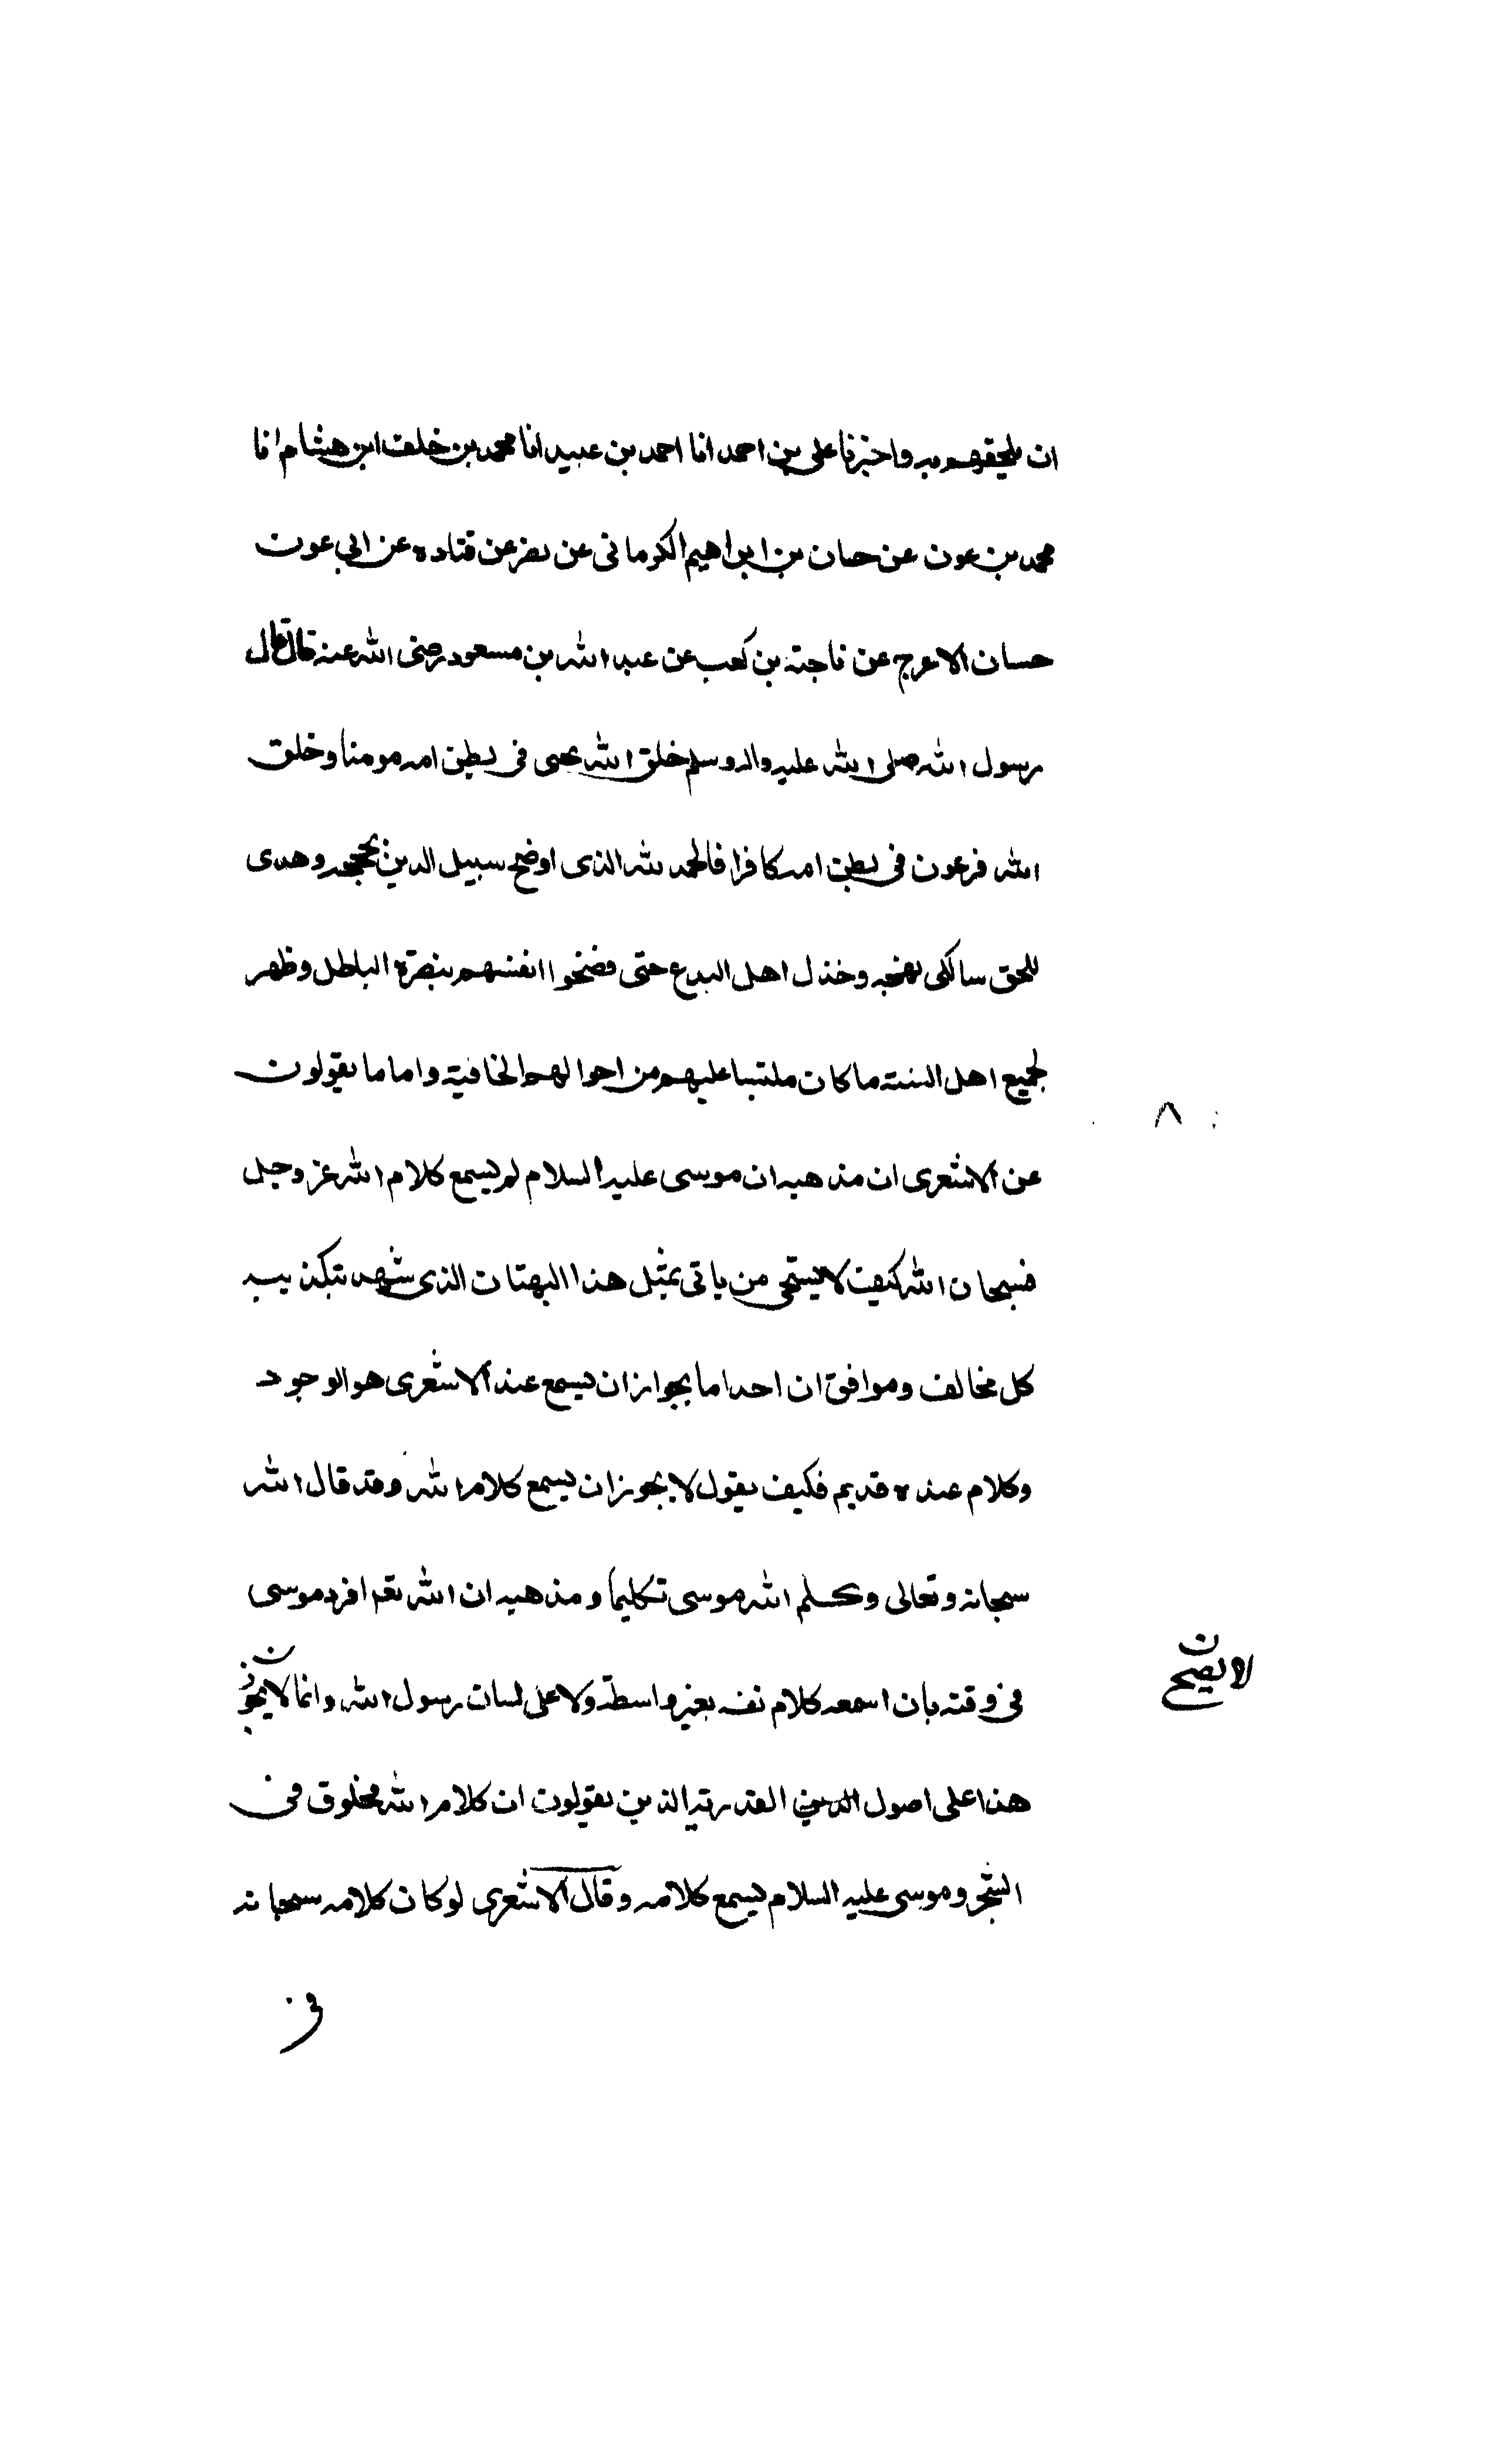 ان يلحقهم به واخبرنا على بن احمد انا احمد بن عبيد انا محمد بن خلف ابن هشام انا
محمد بن عون عن حسان بن ابراهيم الكرمانى عن نصر عن قتاده عن ابى عون
حسان الاعرج عن ناجية بن كعب عن عبد الله بن مسعود رضى الله عنه قال قال
رسول الله صلى الله عليه واله وسلم خلق الله يحيى فى بطن امه مومنا وخلق
الله فرعون فى بطن امه كافرا فالحمد لله الذى اوضح سبيل الدين بحججه وهدى
للحق سالكى نهجه وخذل اهل البدع حتى فضحوا انفسهم بنصرة الباطل وظهر
لجميع اهل السنة ما كان ملتبسا عليهم من احوالهم الخافية واما ما يقولون
عن الاشعرى ان مذهبه ان موسى عليه السلام لم يسمع كلام الله عز وجل
فسبحان الله كيف لا يستحى من ياتى بمثل هذا البهتان الذى شهد بتكذيبه
كل مخالف وموافق ان احدا ما يجوا زان يسمع عند الاشعرى هو الوجود
وكلام عنده قديم فكيف يقول لا يجوز ان يسمع كلام الله وقد قال الله
سبحانه وتعالى وكلم الله موسى تكليما ومذهبه ان الله تعم افرد موسى
فى وقته بان اسمعه كلام نفسه بغير واسطة ولا على لسان رسول الله وانما لا يجوز ن
لا يصح ن
هذا على اصول الدين القدرية الذين يقولون ان كلام الله مخلوق فى
الشجر وموسى عليه السلام يسمع كلامه وقال الاشعرى لو كان كلامه سبحانه
فى